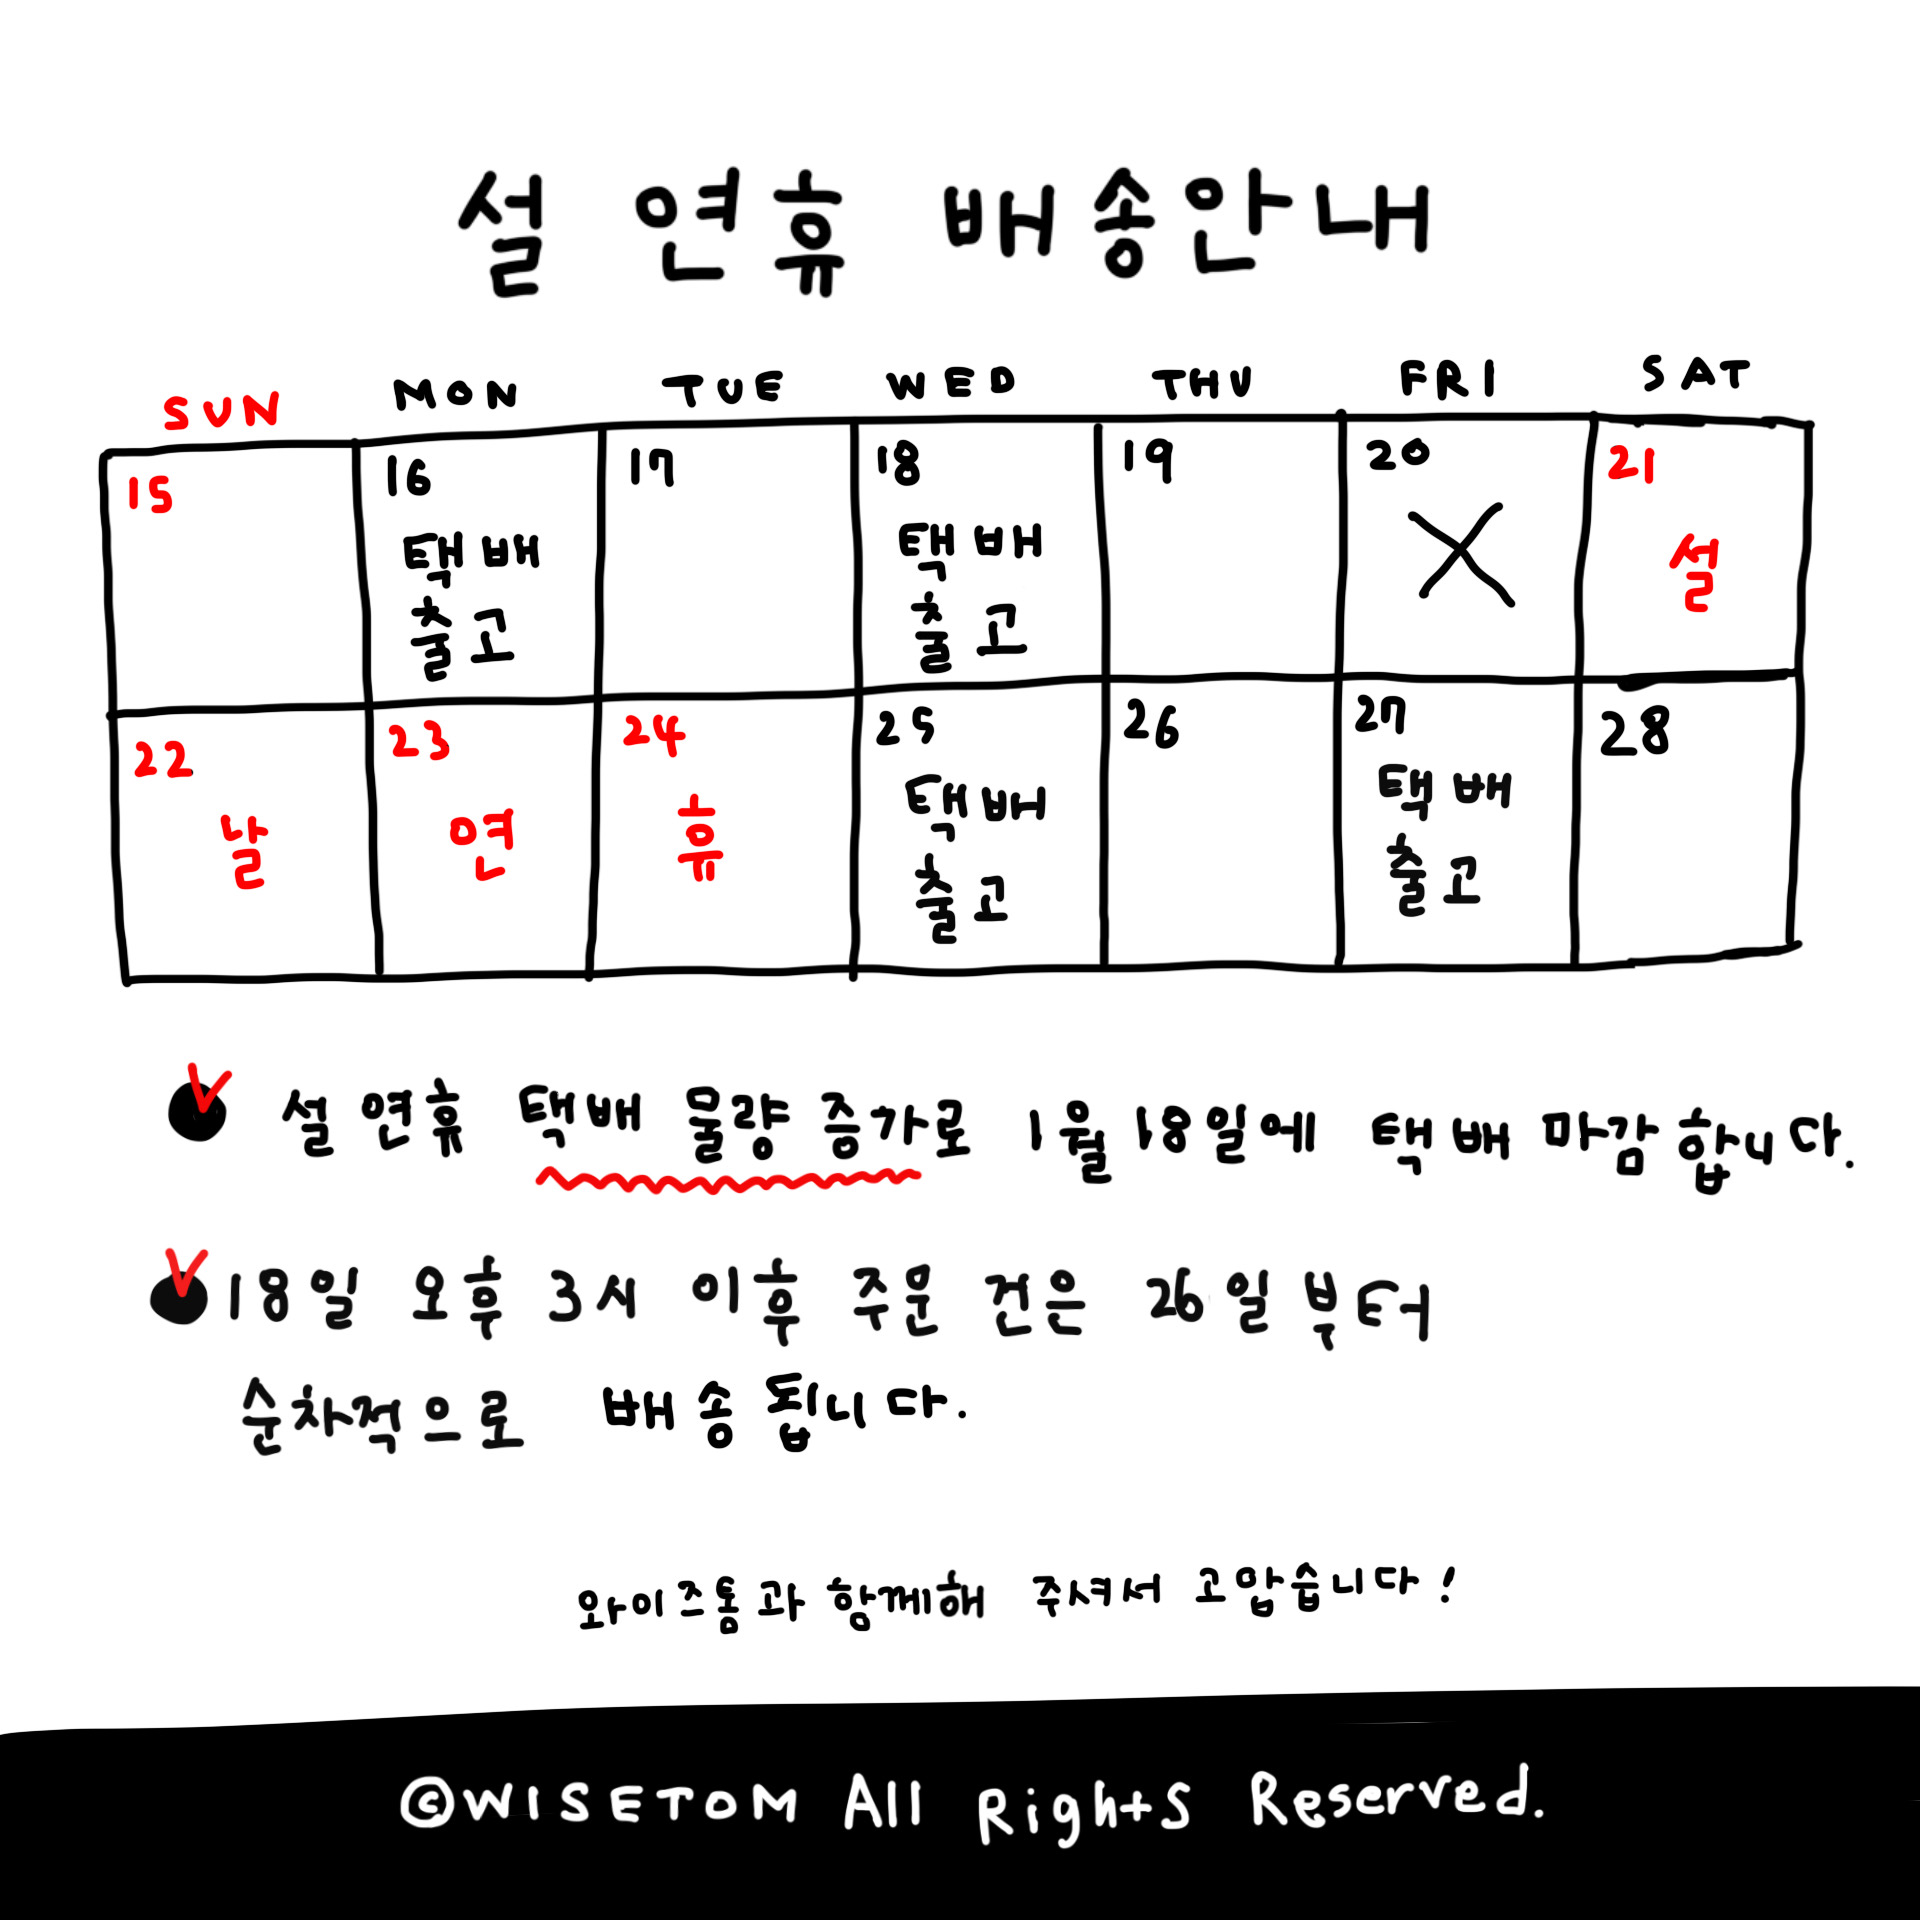 설 연휴 배송안내
SUN MON TUE WED THU FRI SAT
15 16 17 18 19 20 21
택배 택배 X 설
출고 출고
22 23 24 25 26 27 28
날 연 휴 택배 택배
출고 출고
설 연휴 택배 물량 증가로 1월 18일에 택배 마감합니다.
18일 오후 3시 이후 주문 건은 26일부터
순차적으로 배송됩니다.
와이즈톰과 함께해 주셔서 고맙습니다!
©WISETOM All Rights Reserved.